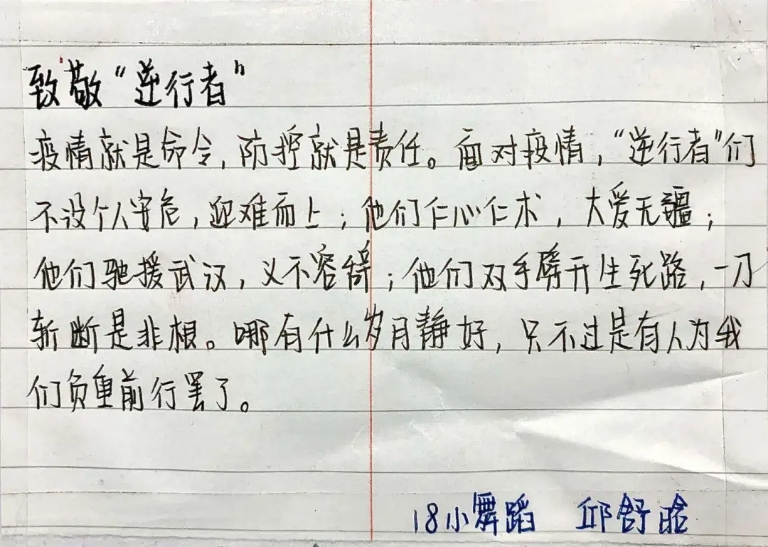 致敬“逆行者”
疫情就是命令,防控就是责任。面对疫情,“逆行者”们
不没个人安危,迎难而上;他们仁心仁术,大爱无疆;
他们驰援武汉,义不容辞;他们双手劈开生死路,一刀
斩断是非根。哪有什么岁月静好,只不过是有人为我
们负重前行罢了。
18小舞蹈 邱舒晗